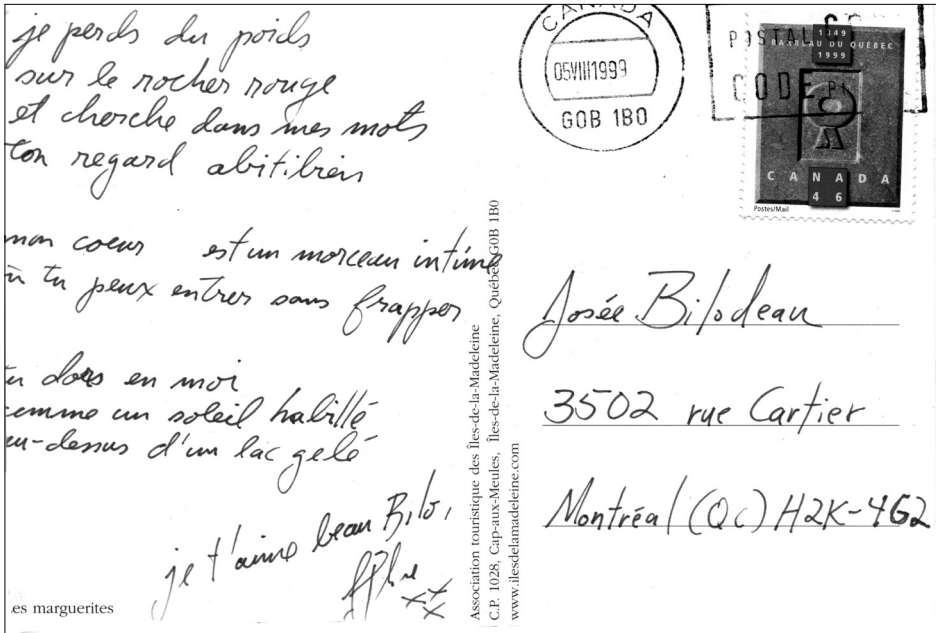 je perds du poids
sur le rocher rouge
et cherche dans mes mots
ton regard abitibien
mon coeur est un morceau intime
où tu peux entrer sans frapper
tu dors en moi
comme un soleil habillé
au-dessus d'un lac gelé
je t'aime beau Bilo,
xxx
Les marguerites
Association touristique des Îles-de-la-Madeleine
C.P. 1028, Cap-aux-Meules, Îles-de-la-Madeleine, Québec G0B 1B0
www.ilesdelamadeleine.com
CANADA
05VIII1999
G0B 1B0
POSTAL
CODE
1849
BARREAU DU QUÉBEC
1999
CANADA
46
Postes/Mail
Josée Bilodeau
3502 rue Cartier
Montréal (Qc) H2K-4G2